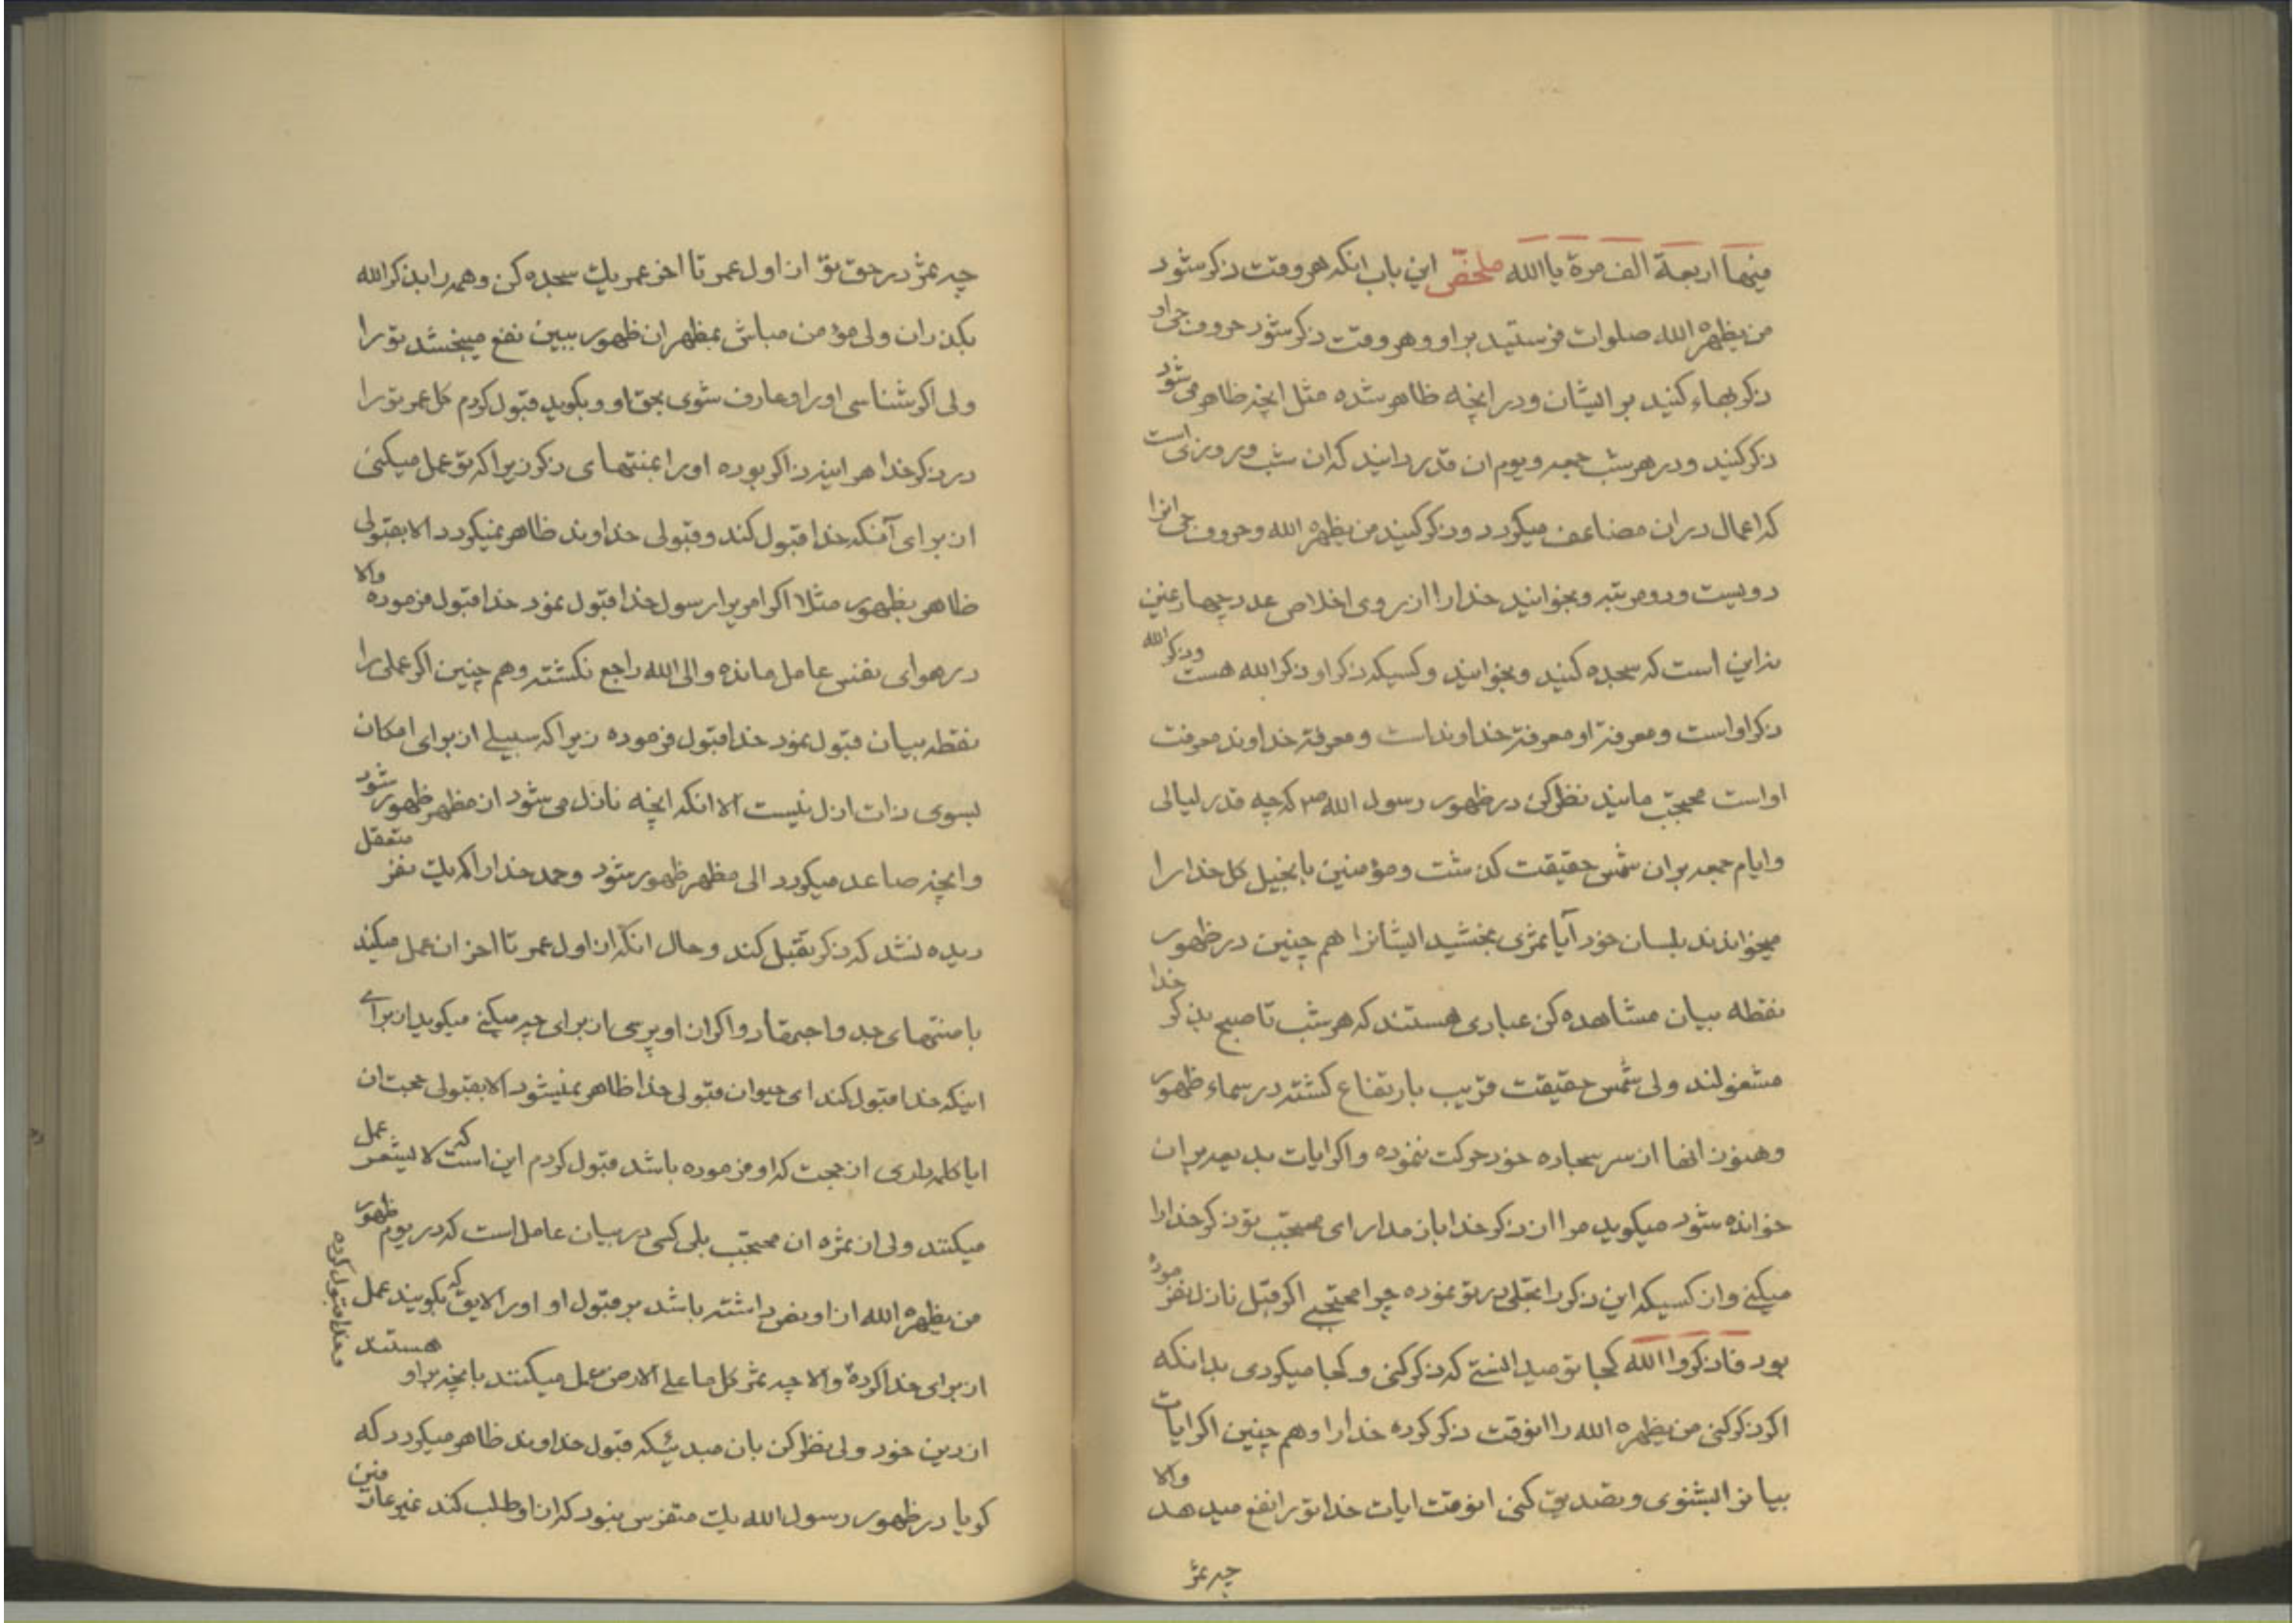 منها اربعة الف مرة یا الله ملخص این باب انکه هر وقت ذکر شود
من یظهره الله صلوات فرستید بر او و هر وقت ذکر شود حروف حی او
ذکر بهاء کنید بر ایشان و در انچه ظاهر شده مثل انچه ظاهر می شود
ذکر کنید و در هر شب جمعه و یوم ان قدر دانید که ان شب و روزی است
که اعمال در ان مضاعف میکردد و ذکر کنید من یظهره الله و حروف حی انرا
دویست و دو مرتبه و بخوانید خدا را از روی اخلاص عدد چهار غین
نه این است که سجده کنید و بخوانید و کسیکه ذکر او ذکر الله هست و ذکر الله
ذکر او است و معرفة او معرفة خداوند است و معرفة خداوند معرفت
او است محتجب مانید نظر کن در ظهور رسول الله ص که چه قدر لیالی
و ایام جمعه بر ان شمس حقیقت کذشت و مؤمنین بانجیل کل خدا را
میخواندند بلسان خود آیا ثمری بخشید ایشانرا هم چنین در ظهور
نقطه بیان مشاهده کن عبادی هستند که هر شب تا صبح بذکر خدا
مشغولند ولی شمس حقیقت قریب بارتفاع کشته در سماء ظهور
و هنوز انها از سر سجاده خود حرکت ننموده و اکر ایات بدیعه بر ان
خوانده شود میکوید مرا از ذکر خدا باز مدار ای محتجب تو ذکر خدا را
میکنی و از کسیکه این ذکر را تجلی در تو نموده چرا محتجبی اکر قبل نازل نفرموده
بود فاذکروا الله کجا تو میدانستی که ذکر کنی و کجا میکردی بدانکه
اکر ذکر کنی من یظهره الله را انوقت ذکر کرده خدا را و هم چنین اکر ایات
بیانرا بشنوی و تصدیق کنی انوقت ایات خدا تو را نفع میدهد والا
چه ثمر
چه ثمر در حق تو از اول عمر تا اخر عمر یک سجده کن و همه را بذکر الله
بکذران ولی مؤمن مباش بمظهر ان ظهور ببین نفع میبخشد تو را
ولی اکر شناسی او را و عارف شوی بحق او و بکوید قبول کردم کل عمر تو را
در ذکر خدا هر اینه ذاکر بوده او را بمنتهای ذکر زیرا که تو عمل میکنی
از برای آنکه خدا قبول کند و قبولی خداوند ظاهر نمیکردد الا بقبولی
ظاهر بظهور مثلا اکر امری را رسول خدا قبول نمود خدا قبول فرموده والا
در هوای نفس عامل مانده و الی الله راجع نکشته و هم چنین اکر عملی را
نقطه بیان قبول نمود خدا قبول فرموده زیرا که سبیلی از برای امکان
بسوی ذات ازل نیست الا انکه انچه نازل می شود از مظهر ظهور شود
و انچه صاعد میکردد الی مظهر ظهور شود و حمد خدا را که یک نفر متعقل
دیده نشد که ذکر تقبل کند و حال انکه از اول عمر تا اخر ان عمل میکند
با منتهای جد و اجتهاد و اکر از او پرسی از برای چه میکنی میکوید از برای
اینکه خدا قبول کند ای حیوان قبولی خدا ظاهر نمیشود الا بقبولی حجت ان
ایا کلمه داری از حجت که او فرموده باشد قبول کردم این است که لا یشعر عمل
میکنند ولی از ثمره ان محتجب بلی کسی در بیان عامل است که در یوم ظهور
من یظهره الله از او نص داشته باشد بر قبول او او را لایق که بکویند عمل
از برای خدا کرده و خدا قبول کرده والا چه ثمر کل ما علی الارض عمل میکنند بانچه بر او هستند
از دین خود ولی نظر کن بان مبدئیکه قبول خداوند ظاهر میکردد که
کویا در ظهور رسول الله یک متفرس نبود که از او طلب کند غیر عارفین